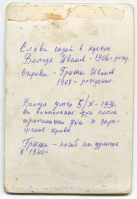 Слева сидит в кресле
Володя Иванов - 1906 г. рожд.
Справа - Гриша Иванов
1907 г. рождения.
Володя умер 5/X - 193
в после
и за-
ражения крови
Гриша - погиб на фронте
в 1944 г.